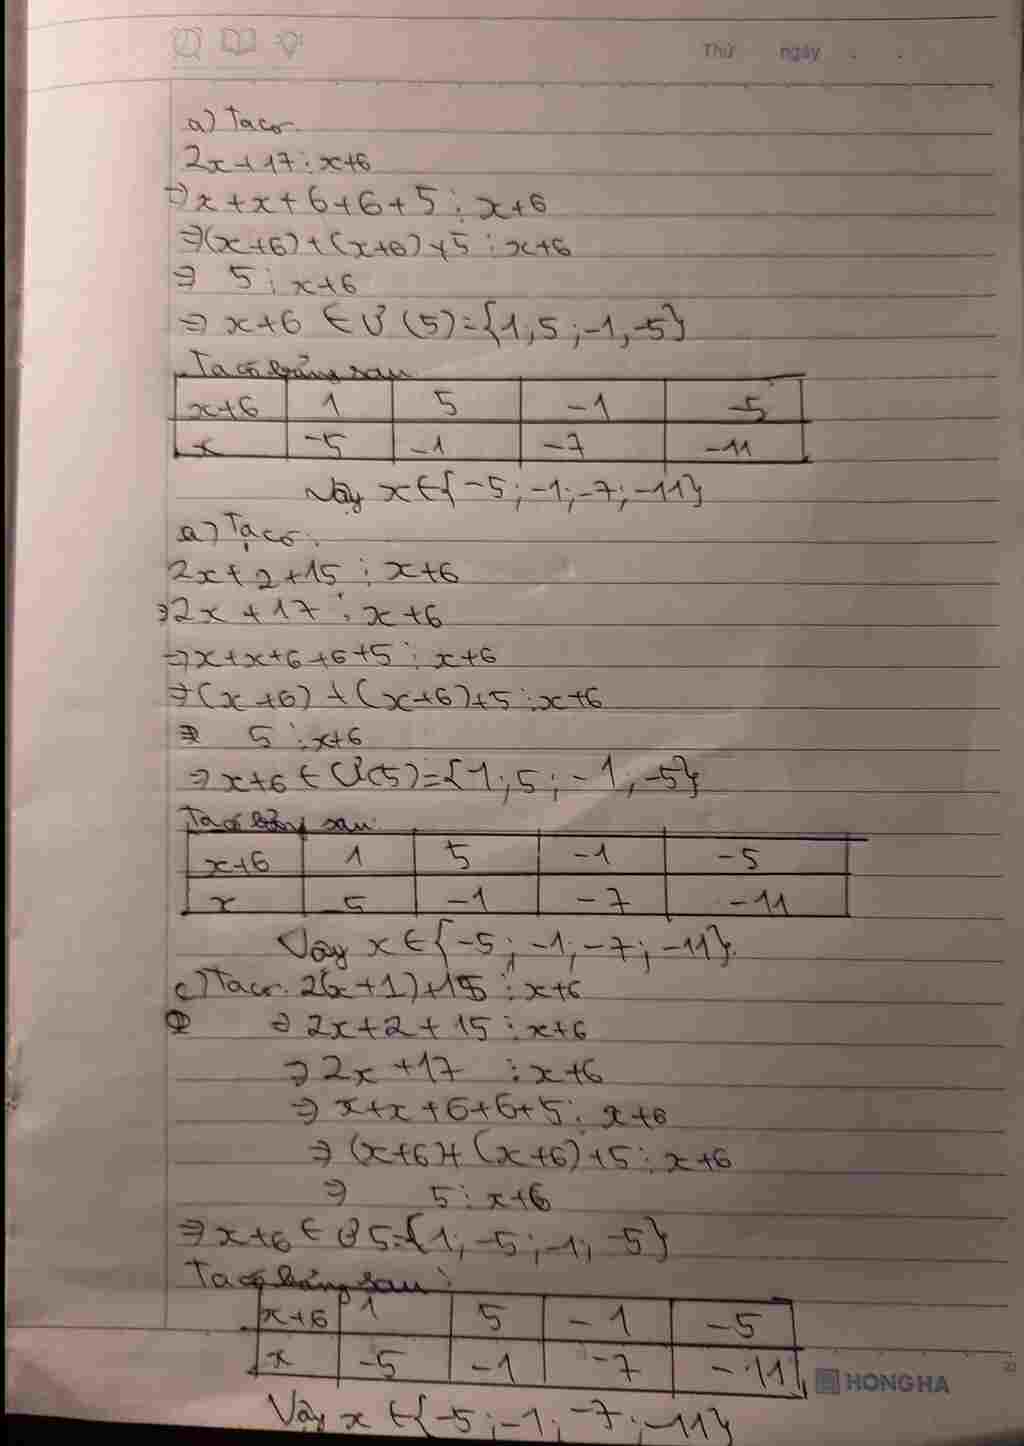 Thứ ngày . .
a) Ta có.
2x+17⋮x+6
⇒x+x+6+6+5⋮x+6
⇒(x+6)+(x+6)+5⋮x+6
⇒ 5⋮x+6
⇒ x+6 ∈Ư(5)={1;5;-1,-5}
Ta có bảng sau
x+6 1 5 -1 -5
x -5 -1 -7 -11
Vậy x∈{-5;-1;-7;-11}
a) Ta có.
2x+2+15⋮x+6
⇒2x+17⋮x+6
⇒x+x+6+6+5⋮x+6
⇒(x+6)+(x+6)+5⋮x+6
⇒ 5⋮x+6
⇒x+6∈Ư(5)={1;5;-1;-5}
Ta có bảng sau:
x+6 1 5 -1 -5
x -5 -1 -7 -11
Vậy x∈{-5;-1;-7;-11}.
c) Ta có. 2(x+1)+15⋮x+6
⇒2x+2+15⋮x+6
⇒2x+17⋮x+6
⇒x+x+6+6+5⋮x+6
⇒(x+6)+(x+6)+5⋮x+6
⇒ 5⋮x+6
⇒x+6∈Ư5={1;-5;-1;-5}
Ta có bảng sau:
x+6 1 5 -1 -5
x -5 -1 -7 -11
HONG HA
Vậy x∈{-5;-1;-7;-11}